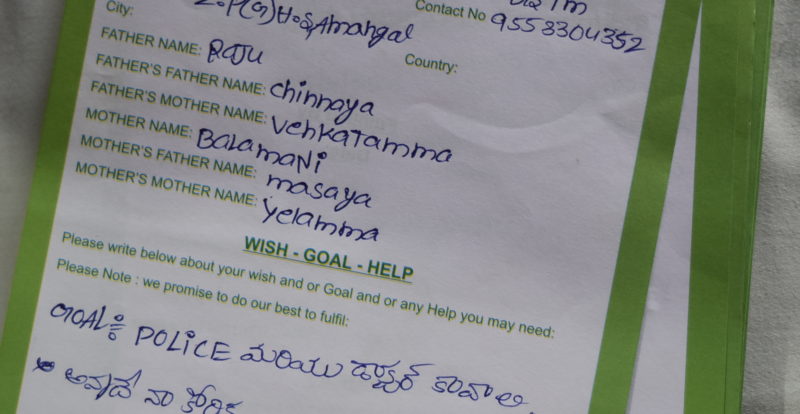 City: Z.P(G)H.S, Amangal
Contact No 9553304352
Country:
FATHER NAME: RAJU
FATHER'S FATHER NAME: chinnaya
FATHER'S MOTHER NAME: VenkaTamma
MOTHER NAME: BALAMANI
MOTHER'S FATHER NAME: masaya
MOTHER'S MOTHER NAME: yelamma
WISH - GOAL - HELP
Please write below about your wish and or Goal and or any Help you may need:
Please Note : we promise to do our best to fulfil:
GOAL: POLICE మరియు డాక్టర్ కావాలి
అవ్వడే నా కోరిక